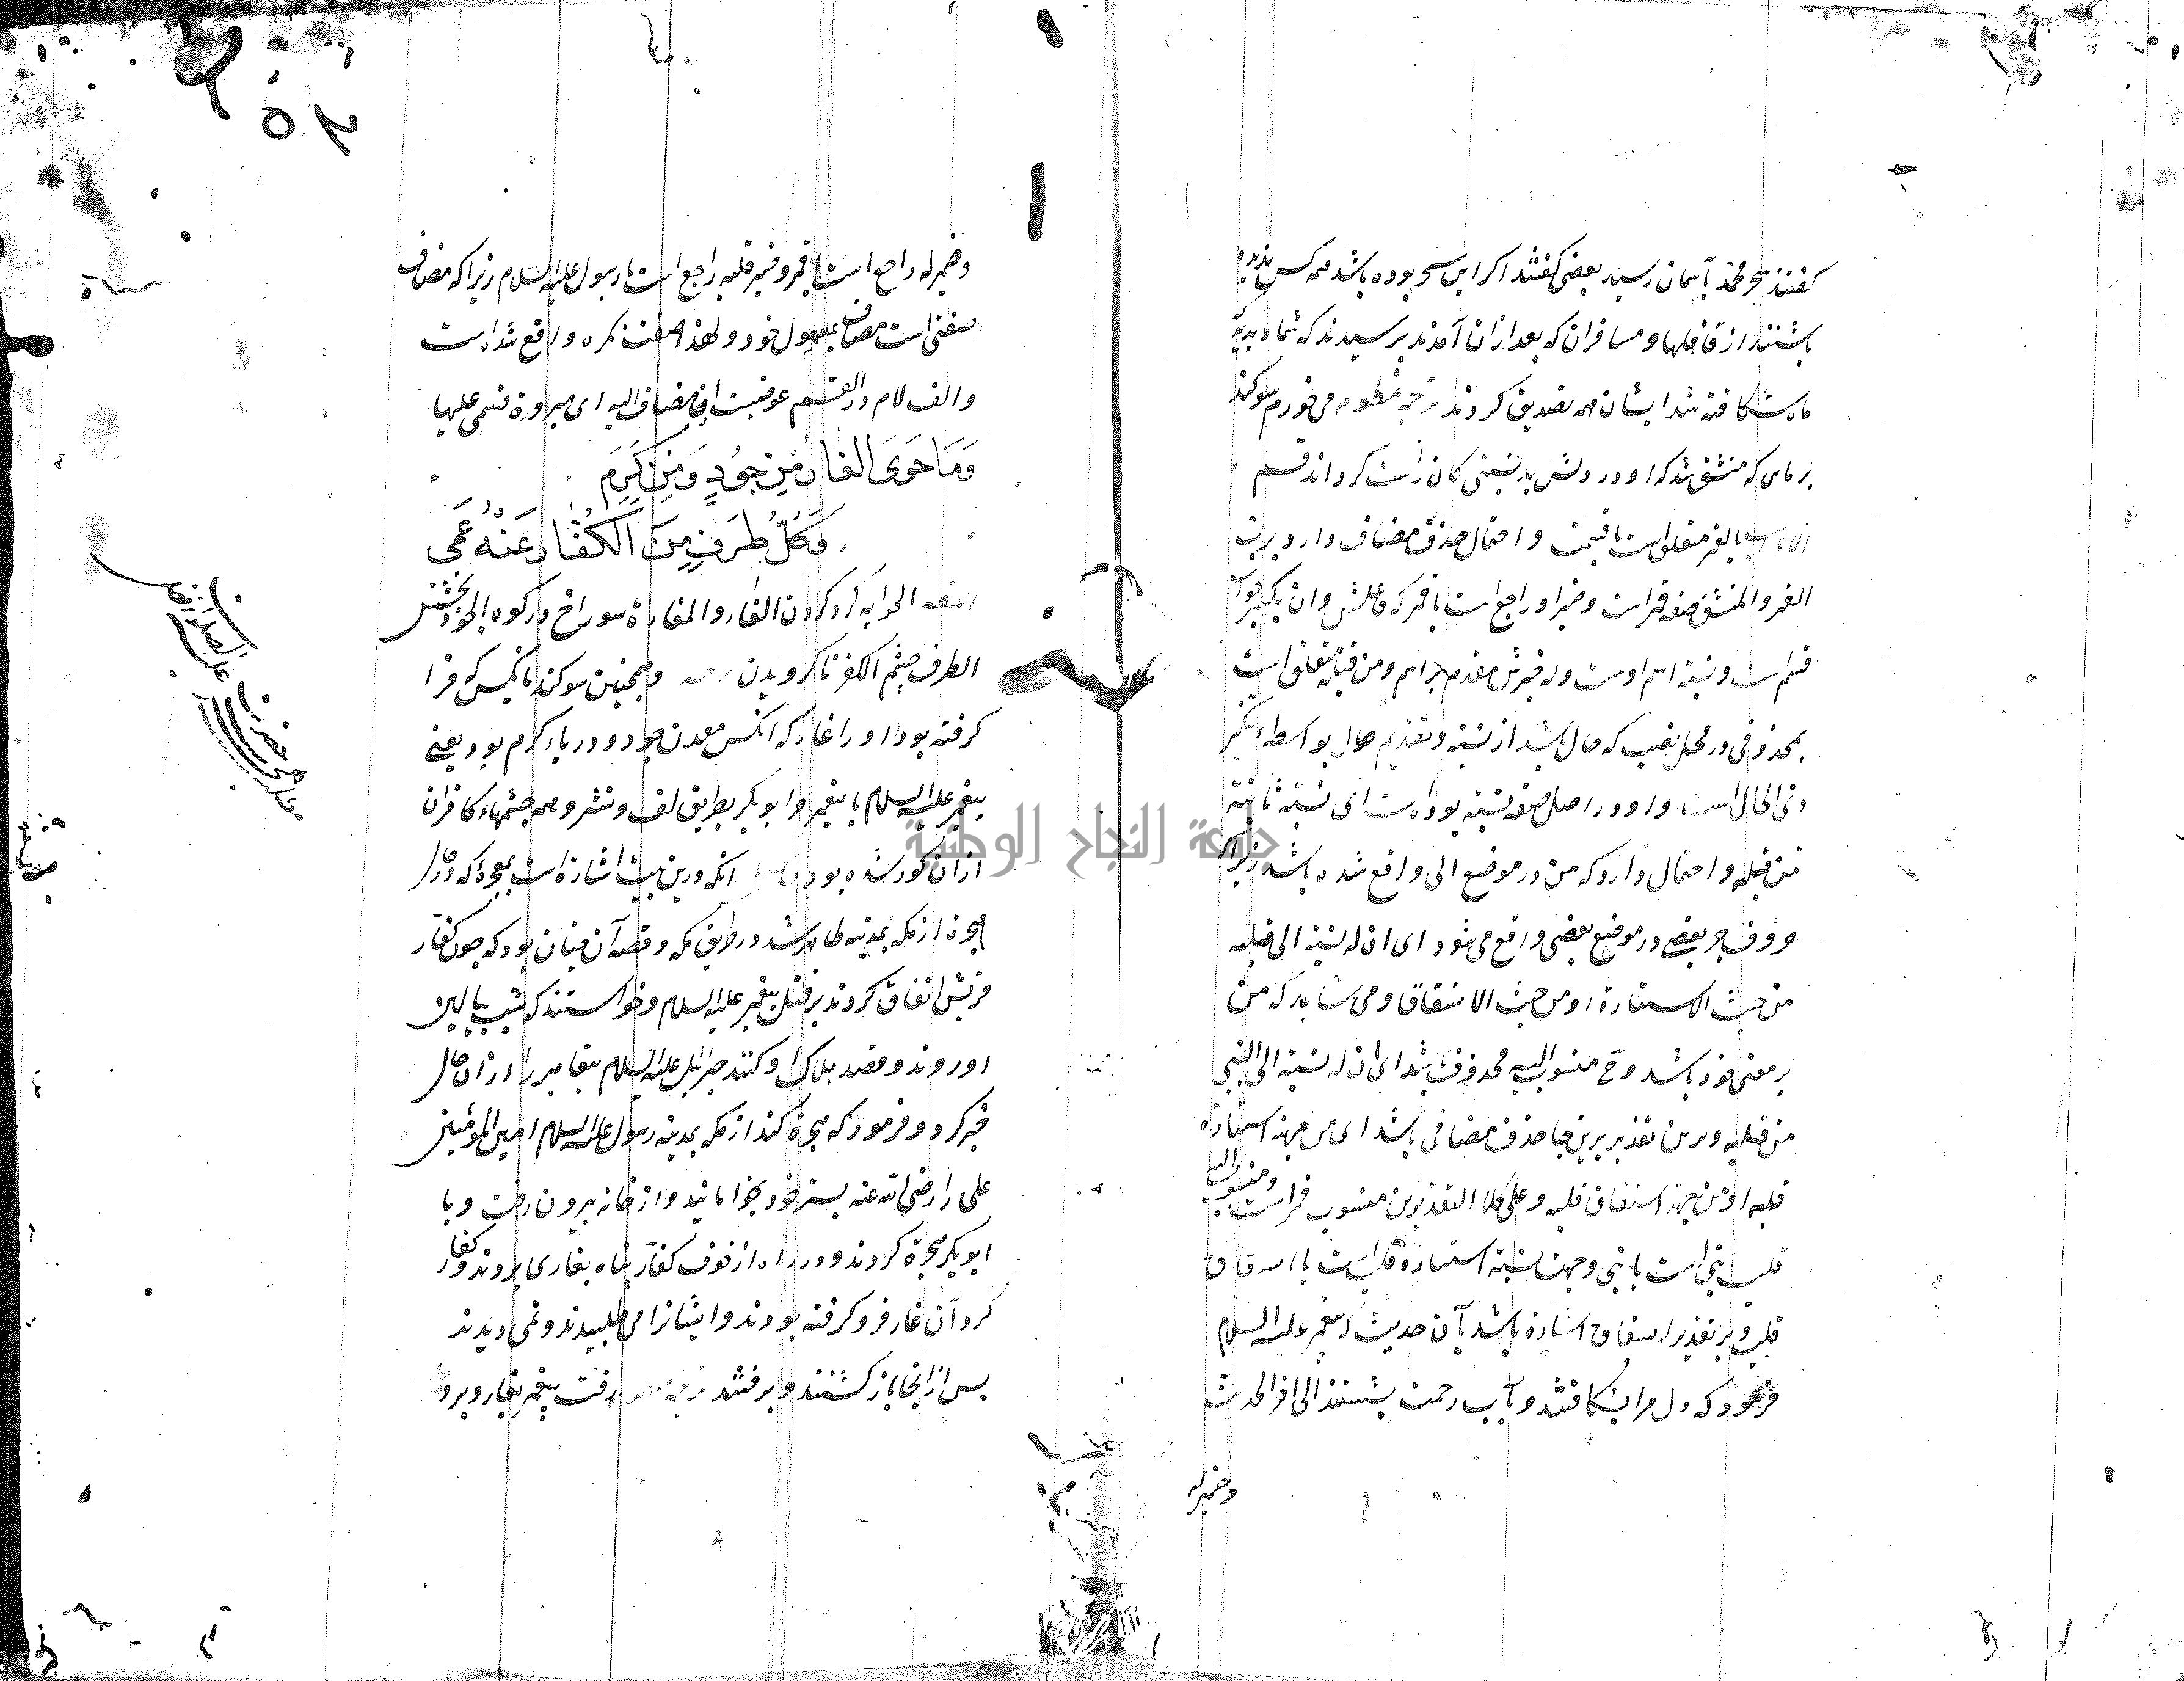 کفتند سحر محمد بآسمان رسید بعضی کفتند اکر این سحر بوده باشد همه کس ندیده
باشند از قافلها و مسافران که بعد از ان آمدند پرسیدند که شما دیدید
ماه شکافته شد ایشان همه تصدیق کردند ترجمه منظومه می خورم سوکند
بر ماهی که منشق شد که او در دلش بد نسبتی کان راست کرداند قسم
بالقمر متعلق است باقسمت و احتمال حذف مضاف دارد برب
القمر و المنشق صفه قمر است و ضمیر او راجع است با قمر که فاعلش و ان بکسر جواب
قسم است و نسبة اسم اوست و له خبرش مقدم بر اسم و من قلبه متعلق است
بمحذوفی در محل نصب که حال باشد از نسبة و تقدیم حال بواسطه تنکیر
ذی الحال است و او در اصل صفه نسبة بوده است ای نسبة ثابتة
من قلبه و احتمال دارد که من در موضع الی واقع شده باشد زیرا که
حروف جر بعضی در موضع بعضی واقع می شود ای ان له نسبة الی قلبه
من حیث الاستنارة او من حیث الانشقاق و می شاید که من
بر معنی خود باشد و ح منسوب الیه محذوف باشد ای ان له نسبة الی النبی
من قلبه و برین تقدیر برین جا حذف مضافی باشد ای من جهة استنارة
قلبه او من جهة انشقاق قلبه و علی کلا التقدیرین منسوب قمر است و منسوب الیه
قلب نبی است یا نبی و جهت نسبة استنارة قلب است یا انشقاق
قلب و بر تقدیر انشقاق اشارة باشد بآن حدیث که پیغمبر علیه السلام
فرمود که دل مرا بشکافتند و بآب رحمت بشستند الی اخر الحدیث
وضمیر له
وضمیر له راجع است با قمر و ضمیر قلبه راجع است با رسول علیه السلام زیرا که مضاف
صفتی است مضاف بمعمول خود و لهذا صفت نکره واقع شده است
والف لام در القسم عوضیت از مضاف الیه ای مبرورة قسمی علیها
وَمَا حَوَى الغَارُ مِن جُودٍ وَمِن كَرَمٍ
وَكُلُّ طَرْفٍ مِنَ الكُفَّارِ عَنْهُ عَمِى
کرد کردن الغار و المغارة سوراخ در کوه الجود بخشش
الطرف چشم الکفر ناکرویدن وهمچنین سوکند بانکس که فرا
کرفته بود او را غار که انکس معدن جود و دریاء کرم بود یعنی
پیغمبر علیه السلام یا پیغمبر و ابوبکر بطریق لف و نشر و همه چشمهاء کافران
از ان کور شده بود انکه درین بیت اشارة است بمعجزه که در حال
هجرة از مکه بمدینه ظاهر شد در طریق مکه و قصه آن چنان بود که چون کفار
قریش اتفاق کردند بر قتل پیغمبر علیه السلام و خواستند که شب ببالین
او روند و قصد هلاک او کنند جبرائیل علیه السلام پیغامبر را از ان حال
خبر کرد و فرمود که هجرة کند از مکه بمدینه رسول علیه السلام امیر المؤمنین
علی را رضی الله عنه بستر خود بخوابانید و از خانه بیرون رفت و با
ابوبکر هجرة کردند و در راه از خوف کفار پناه بغاری بردند و کفار
کرد آن غار فرو کرفته بودند و ایشانرا می طلبیدند و نمی دیدند
پس از انجا باز کشتند و برفتند رفت پیغمبر بغار و برد
جامعة النجاح الوطنية